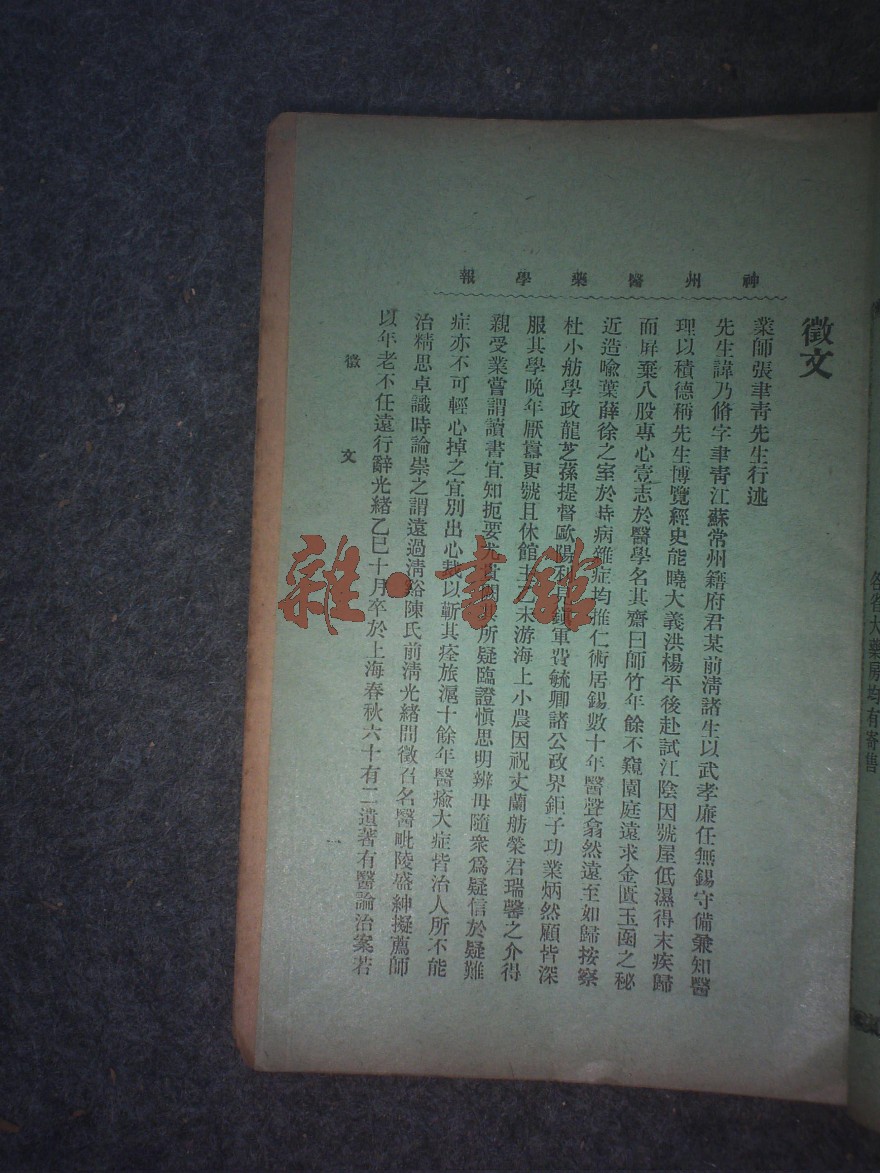 神州醫藥學報
徵文
業師張聿青先生行述
先生諱乃脩字聿靑江蘇常州籍府君某前淸諸生以武孝廉任無錫守備兼知醫
理以積德稱先生博覽經史能曉大義洪楊平後赴試江陰因號屋低濕得末疾歸
而屏棄八股專心壹志於醫學名其齋曰師竹年餘不窺園庭遠求金匱玉函之秘
近造喩葉薛徐之室於時病雜症均推仁術居錫數十年醫聲翕然遠至如歸按察
杜小舫學政龍芝蓀提督歐陽利見鎭軍費毓卿諸公政界鉅子功業炳然顧皆深
服其學晚年厭囂更號且休館主末游海上小農因祝丈蘭舫榮君瑞馨之介得
親受業嘗謂讀書宜知扼要尤貴所疑臨證愼思明辨毋隨衆爲疑信於疑難
症亦不可輕心掉之宜別出心裁以蘄其痊旅滬十餘年醫瘉大症皆治人所不能
治精思卓識時論崇之謂遠過淸谿陳氏前淸光緒間徵召名醫毗陵盛紳擬薦師
以年老不任遠行辭光緒乙巳十月卒於上海春秋六十有二遺著有醫論治案若
徵文
一
各省大藥房均有寄售
雜·書館